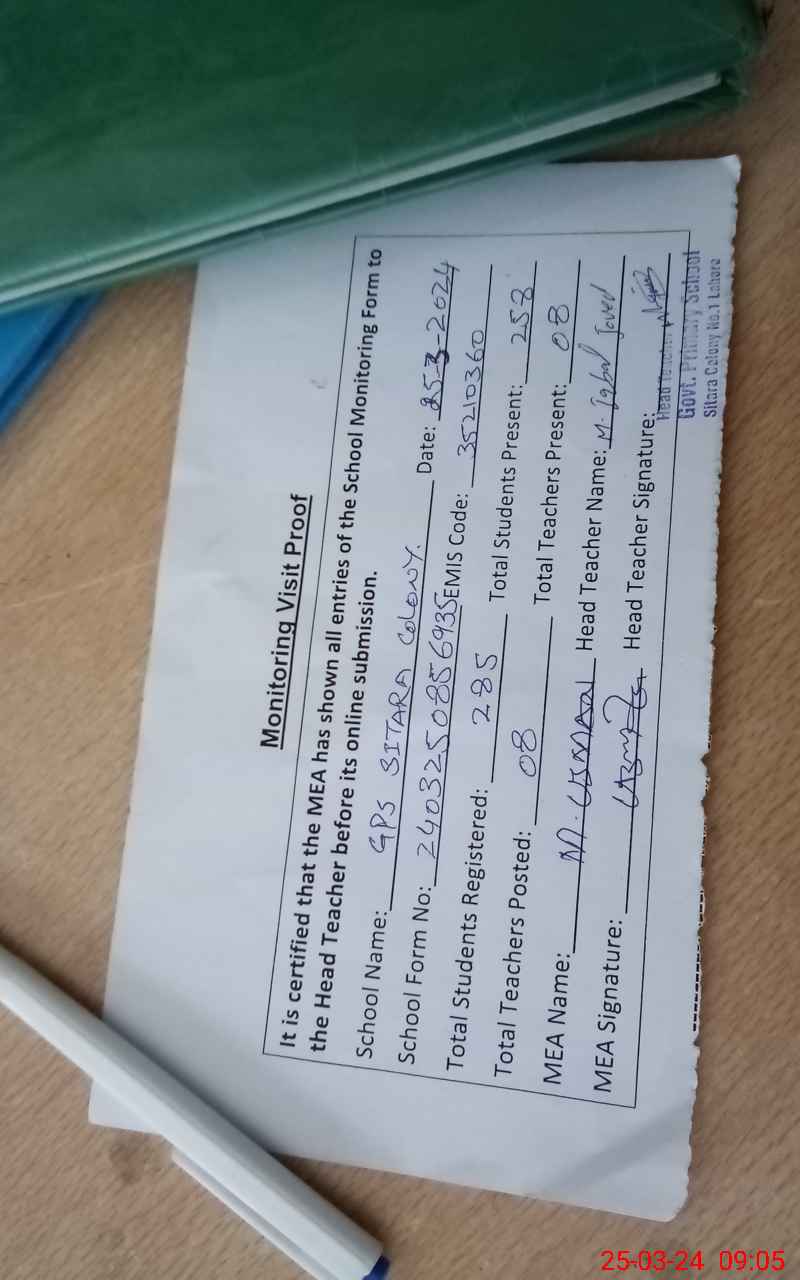 Monitoring Visit Proof
It is certified that the MEA has shown all entries of the School Monitoring Form to
the Head Teacher before its online submission.
School Name: GPS SITARA COLONY. Date: 25-3-2024
School Form No: 2403250856935 EMIS Code: 35210360
Total Students Registered: 285 Total Students Present: 258
Total Teachers Posted: 08 Total Teachers Present: 08
MEA Name: M. USMAN Head Teacher Name: M. Iqbal Javed
MEA Signature: Head Teacher Signature:
Head Teacher
Govt. Primary School
Sitara Colony No.1 Lahore
25-03-24 09:05